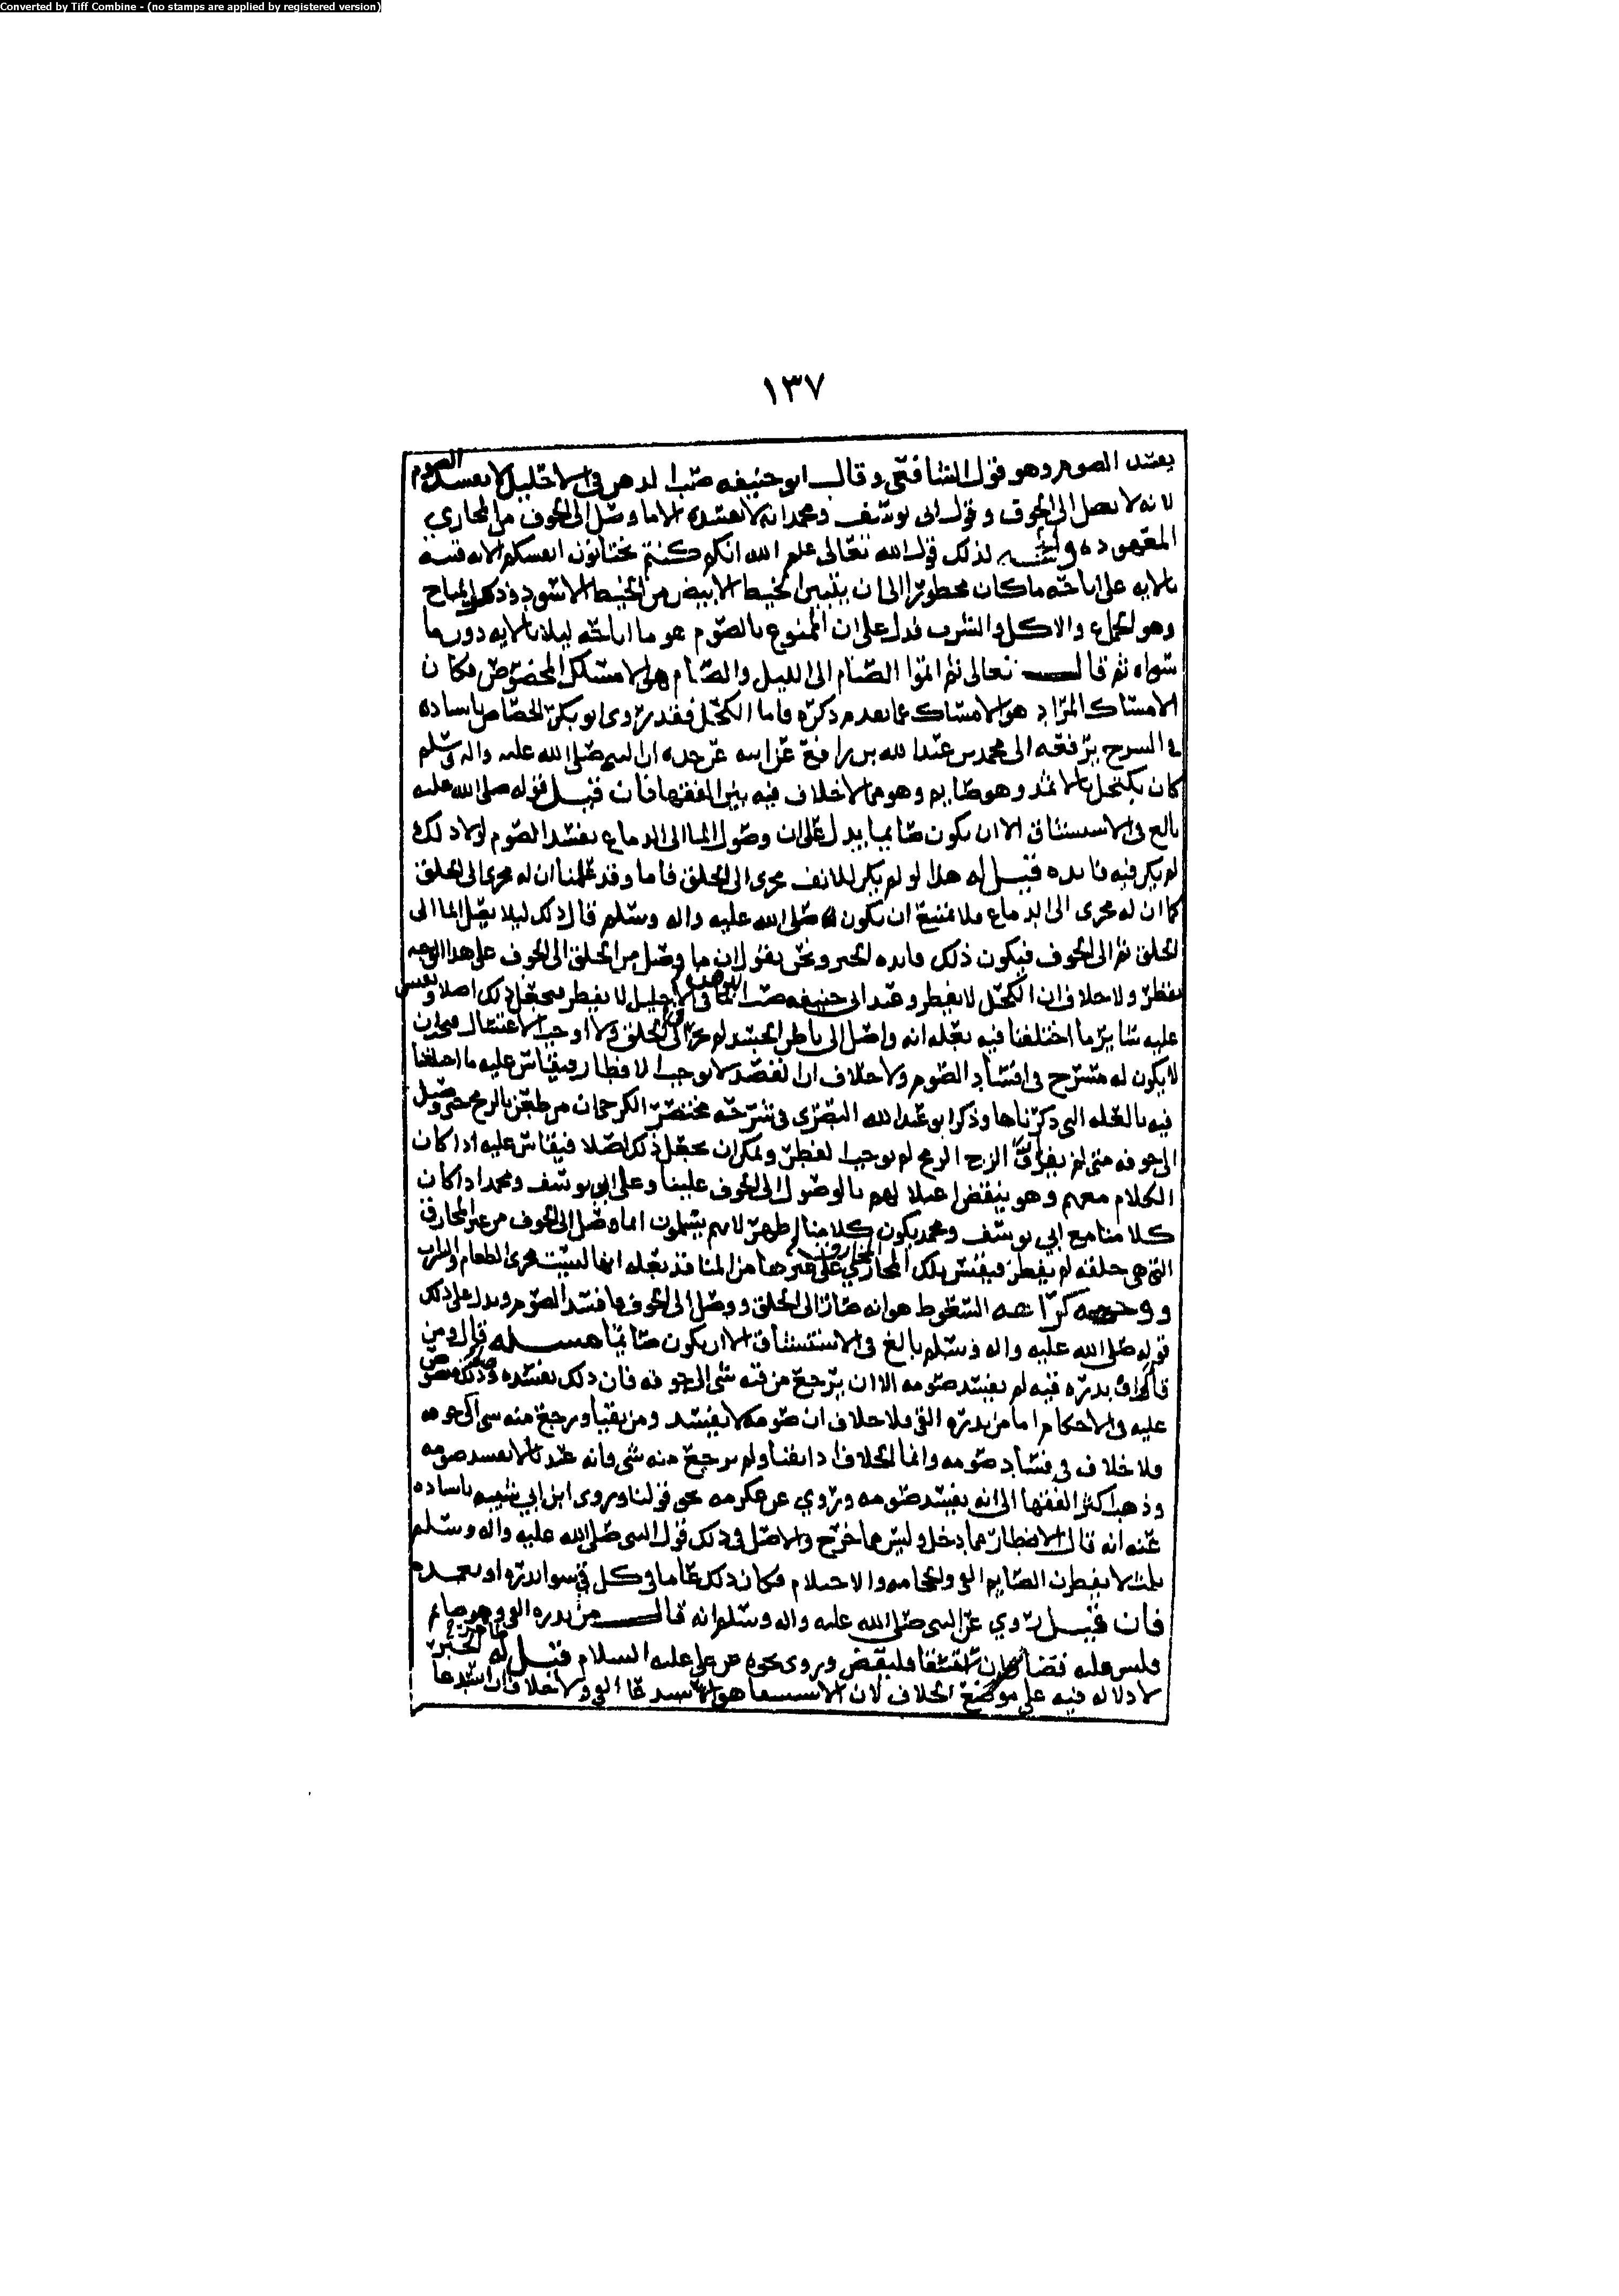 Converted by Tiff Combine - (no stamps are applied by registered version)
١٣٧
يفسد الصوم وهو قول الشافعي وقال ابو حنيفه صب الدهن في الاحليل لا يفسد الصوم
لانه لا يصل الى الجوف وقول ابي يوسف ومحمد انه لا يفسده الا ما وصل الى الجوف من المجاري
المعهوده لذلك قول الله تعالى علم الله انكم كنتم تختانون انفسكم الايه فنبه
بالايه على اباحه ما كان محظورا الى ان يتبين الخيط الابيض من الخيط الاسود وذكر المباح
وهو الجماع والاكل والشرب فدل على ان الممنوع بالصوم هو ما اباحته ليلا بالايه دون ما
سواه ثم قال تعالى ثم اتموا الصيام الى الليل والصيام هو الامساك المخصوص فكان
الامساك المراد هو الامساك عما تقدم ذكره فاما الكحل فقد روى ابو بكر الجصاص باسناده
في الشرح يرفعه الى محمد بن عبدالله بن رافع عن ابيه عن جده ان النبي صلى الله عليه واله وسلم
كان يكتحل بالاثمد وهو صايم وهو مما لا خلاف فيه بين الفقها فان قيل قوله صلى الله عليه
بالغ في الاستنشاق الا ان يكون صايما يدل على ان وصول الما الى الدماغ يفسد الصوم لولا ذلك
لم يكن فيه فايده قيل له هذا لو لم يكن للانف مجرى الى الحلق فاما وقد علمنا ان له مجرى الى الحلق
كما ان له مجرى الى الدماغ فلا يمتنع ان يكون صلى الله عليه واله وسلم قال ذلك ليلا يصل الما الى
الحلق ثم الى الجوف فيكون ذلك فايده الخبر ونحن نقول ان ما وصل من الحلق الى الجوف على هذا الوجه
يفطر ولا خلاف ان الكحل لا يفطر وعند ابي حنيفه صب الدهن في الاحليل لا يفطر فنجعل ذلك اصلا ونقيس
عليه ساير ما اختلفنا فيه بعله انه واصل الى باطن الجسد لم يجز الى الحلق ولا اوجب الاغتسال فيجب ان
لا يكون له مسرح في افساد الصوم ولا خلاف ان الفصد لا يوجب الافطار ويقاس عليه ما اختلفنا
فيه بالعله التي ذكرناها وذكر ابو عبدالله البصري في شرحه مختصر الكرخي ان من طعن بالرمح حتى وصل
الى جوفه متى لم يفارق الزج الرمح لم يوجب الفطر ويمكن ان نجعل ذلك اصلا فيقاس عليه اذا كان
الكلام معهم وهو ينقض اعتلالهم بالوصول الى الجوف علينا وعلى ابي يوسف ومحمد اذا كان
كلامنا مع ابي يوسف ومحمد يكون كلامنا اظهر لانهم يسلمون ان ما وصل الى الجوف من غير المخارق
التي هي خلقه لم يفطر فيقيس تلك المخارق على غيرها من المنافذ بعله انها ليست مجرى الطعام والشراب
ووجه كراهه السعوط هو انه صار الى الحلق ووصل الى الجوف فافسد الصوم ويدل على ذلك
قوله صلى الله عليه واله وسلم بالغ في الاستنشاق الا ان يكون صايما مسله قال ومن
قا او بدره قيه لم يفسد صومه الا ان يرجع من فيه شي الى جوفه فان ذلك يفسده وذلك منصوص
عليه في الاحكام اما من بدره القي فلا خلاف ان صومه لا يفسد ومن تقيا ورجع منه شي الى جوفه
فلا خلاف في فساد صومه وانما الخلاف اذا تقيا ولم يرجع منه شي فانه عندنا لا يفسد صومه
وذهب اكثر الفقها الى انه يفسد صومه وروي عن عكرمه نحو قولنا وروى ابن ابي شيبه باسناده
عنه انه قال الافطار مما دخل وليس مما خرج والاصل في ذلك قول النبي صلى الله عليه واله وسلم
ثلث لا يفطرن الصايم القي والحجامه والاحتلام فكان ذلك عاما في كل قي سوا بدره او تعمده
فان قيل روي عن النبي صلى الله عليه واله وسلم انه قال من بدره القي وهو صايم
فليس عليه قضا وان استقا فليقض وروى نحوه عن علي عليه السلام قيل له الخبر
لا دلاله فيه على موضع الخلاف لان الاستقا هو استدعا القي ولا خلاف ان استدعا